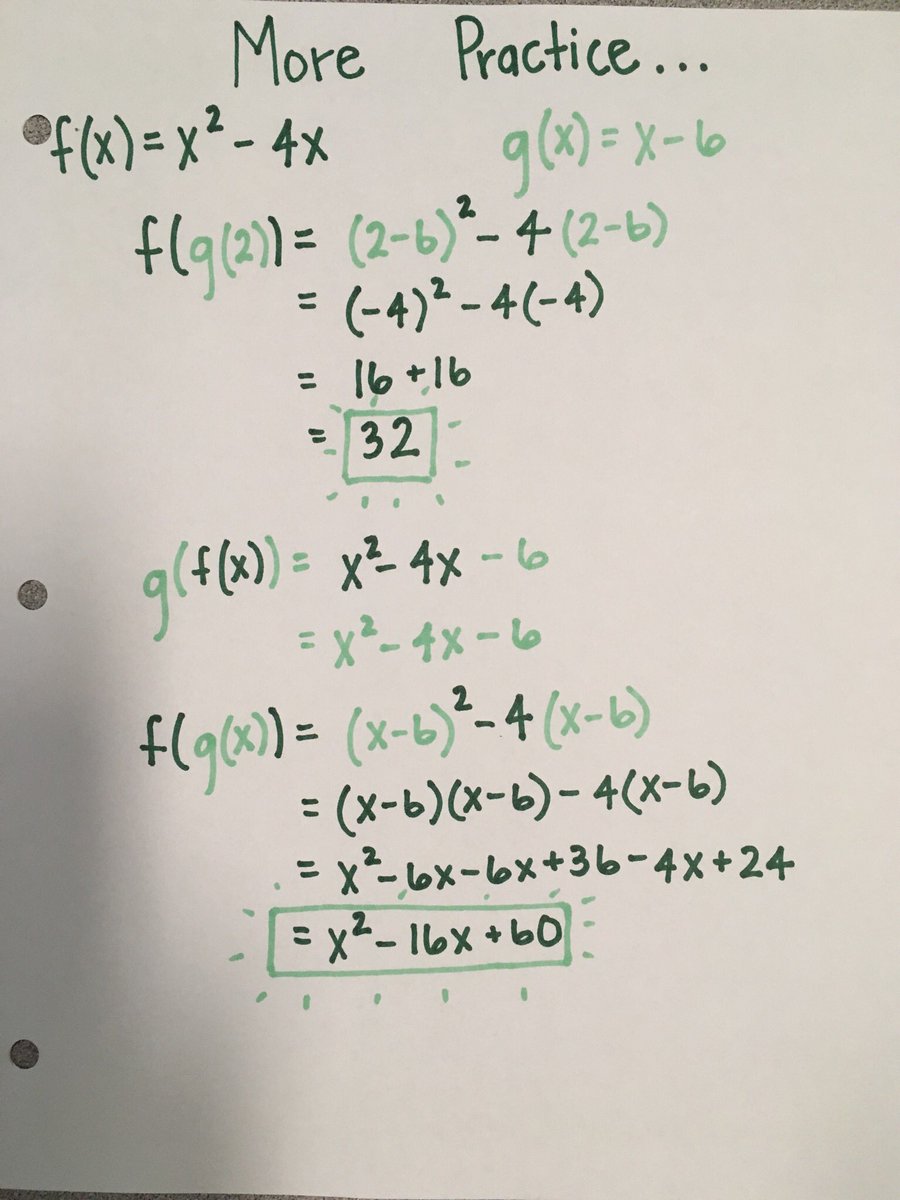 More Practice...
f(x) = x² - 4x g(x) = x - 6
f(g(2)) = (2-6)² - 4(2-6)
= (-4)² - 4(-4)
= 16 + 16
= 32
g(f(x)) = x² - 4x - 6
= x² - 4x - 6
f(g(x)) = (x-6)² - 4(x-6)
= (x-6)(x-6) - 4(x-6)
= x² - 6x - 6x + 36 - 4x + 24
= x² - 16x + 60